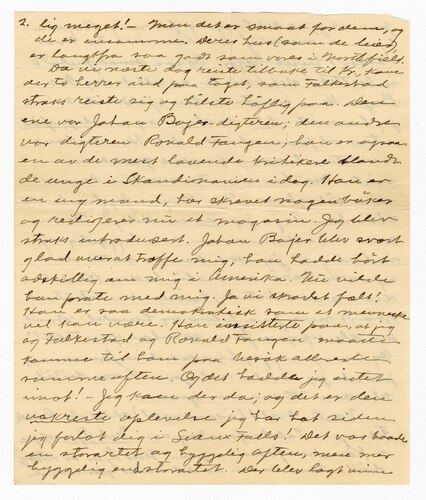 2. lig meget! – Men det er smaat for dem, og
de er ensomme. Deres hus (som de leier)
er langt fra saa godt som vores i Northfield.
Da vi næste dag reiste tilbake til Kr., kom
der to herrer ind paa toget, som Falkestad
straks reiste sig og hilste høflig paa. Den
ene var Johan Bojer, digteren; den andre
var digteren Ronald Fangen; han er ogsaa
en av de mest lovende kritikere blandt
de unge i Skandinavien i dag. Han er
en ung mand, har skrevet nogen bøker
og redigerer nu et magasin. Jeg blev
straks introdusert. Johan Bojer blev svært
glad over at træffe mig; han hadde hört
adskillig om mig i Amerika. Nu vilde
han prate med mig. Ja vi skravlet fælt!
Han er saa demokratisk som et menneske
vel kan være. Han insisterte paa, at jeg
og Falkestad og Ronald Fangen maatte
komme til ham paa besøk allerede
samme aften. Og det hadde jeg intet
imot! – Jeg kom der da; og det er den
vakreste oplevelse jeg har hat siden
jeg forlot dig i Sioux Falls! Det var baade
en storartet og hyggelig aften, men mer
hyggelig end storartet. Der blev lagt